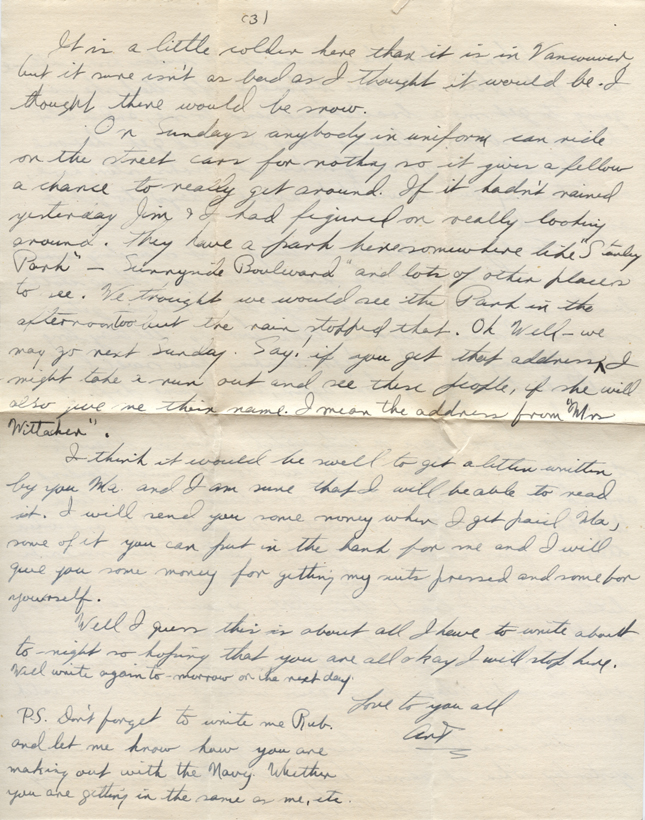 (3)
It is a little colder here than it is in Vancouver,
but it sure isn't as bad as I thought it would be. I
thought there would be snow.
On Sundays anybody in uniform can ride
on the street cars for nothing so it gives a fellow
a chance to really get around. If it hadn't rained
yesterday Jim & I had figured on really looking
around. They have a park here somewhere like "Stanley
Park" — Sunnyside Boulevard" and lots of other places
to see. We thought we would see the Park in the
afternoon too but the rain stopped that. Oh Well — we
may go next Sunday. Say! if you get that address, I
might take a run out and see these people, if she will
also give me their name. I mean the address from "Mrs
Wittaker".
I think it would be swell to get a letter written
by you Ma. and I am sure that I will be able to read
it. I will send you some money when I get paid Ma,
some of it you can put in the bank for me and I will
give you some money for getting my suits pressed and some for
yourself.
Well I guess this is about all I have to write about
to-night so hoping that you are all okay I will stop here.
Will write again to-morrow or the next day.
Love to you all
Art
P.S. Don't forget to write me Rub.
and let me know how you are
making out with the Navy. Whether
you are getting in the same as me, etc.